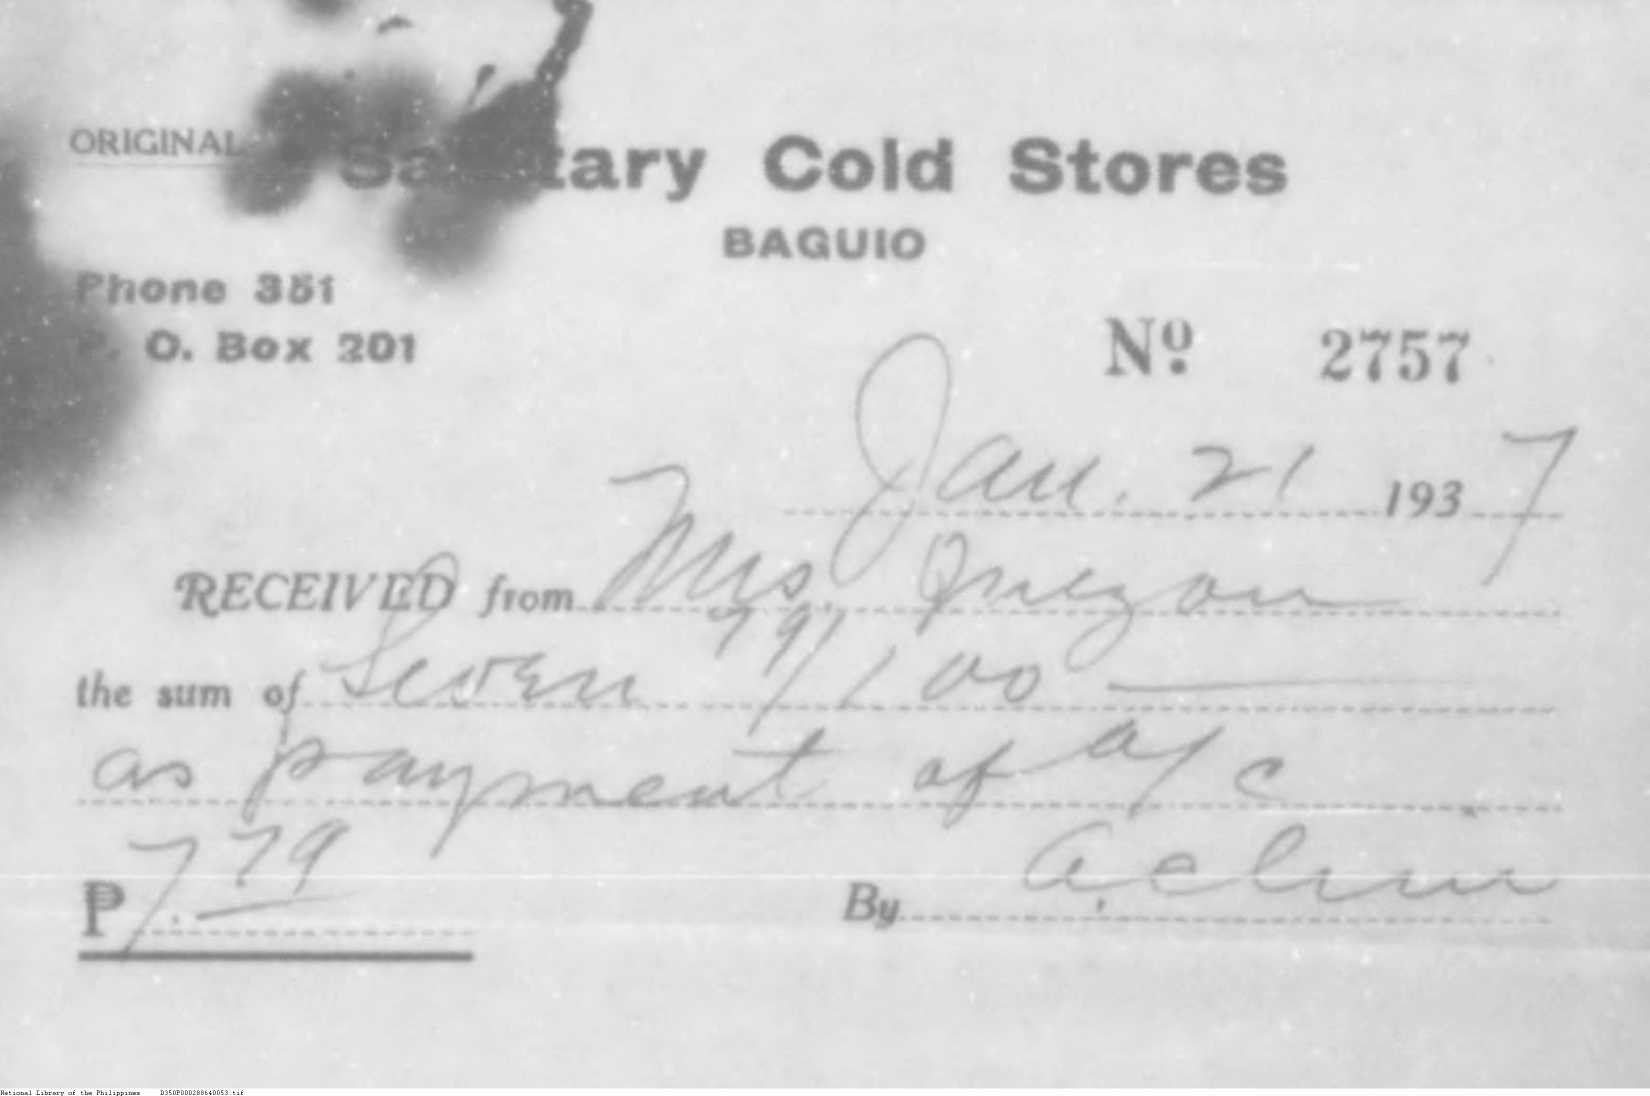 ORIGINAL
Sanitary Cold Stores
BAGUIO
Phone 351
P. O. Box 201
Nº 2757
Jan. 21 1937
RECEIVED from Mrs. Quezon
the sum of Seven 79/100
as payment of a/c
₱ 7.79
By
National Library of the Philippines D350P000288640053.tif